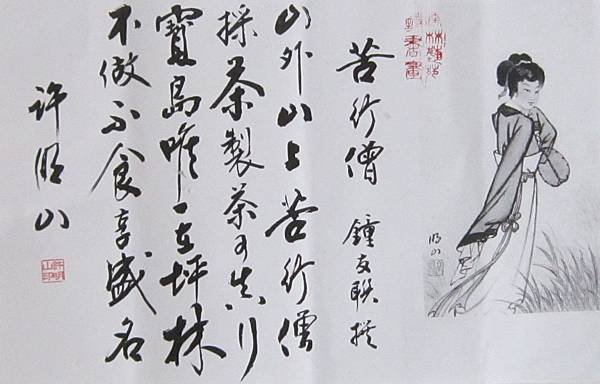 苦行僧 鍾友聯撰
山外山上苦行僧
採茶製茶可真行
寶島唯一在坪林
不做不食享盛名
許明山
明山